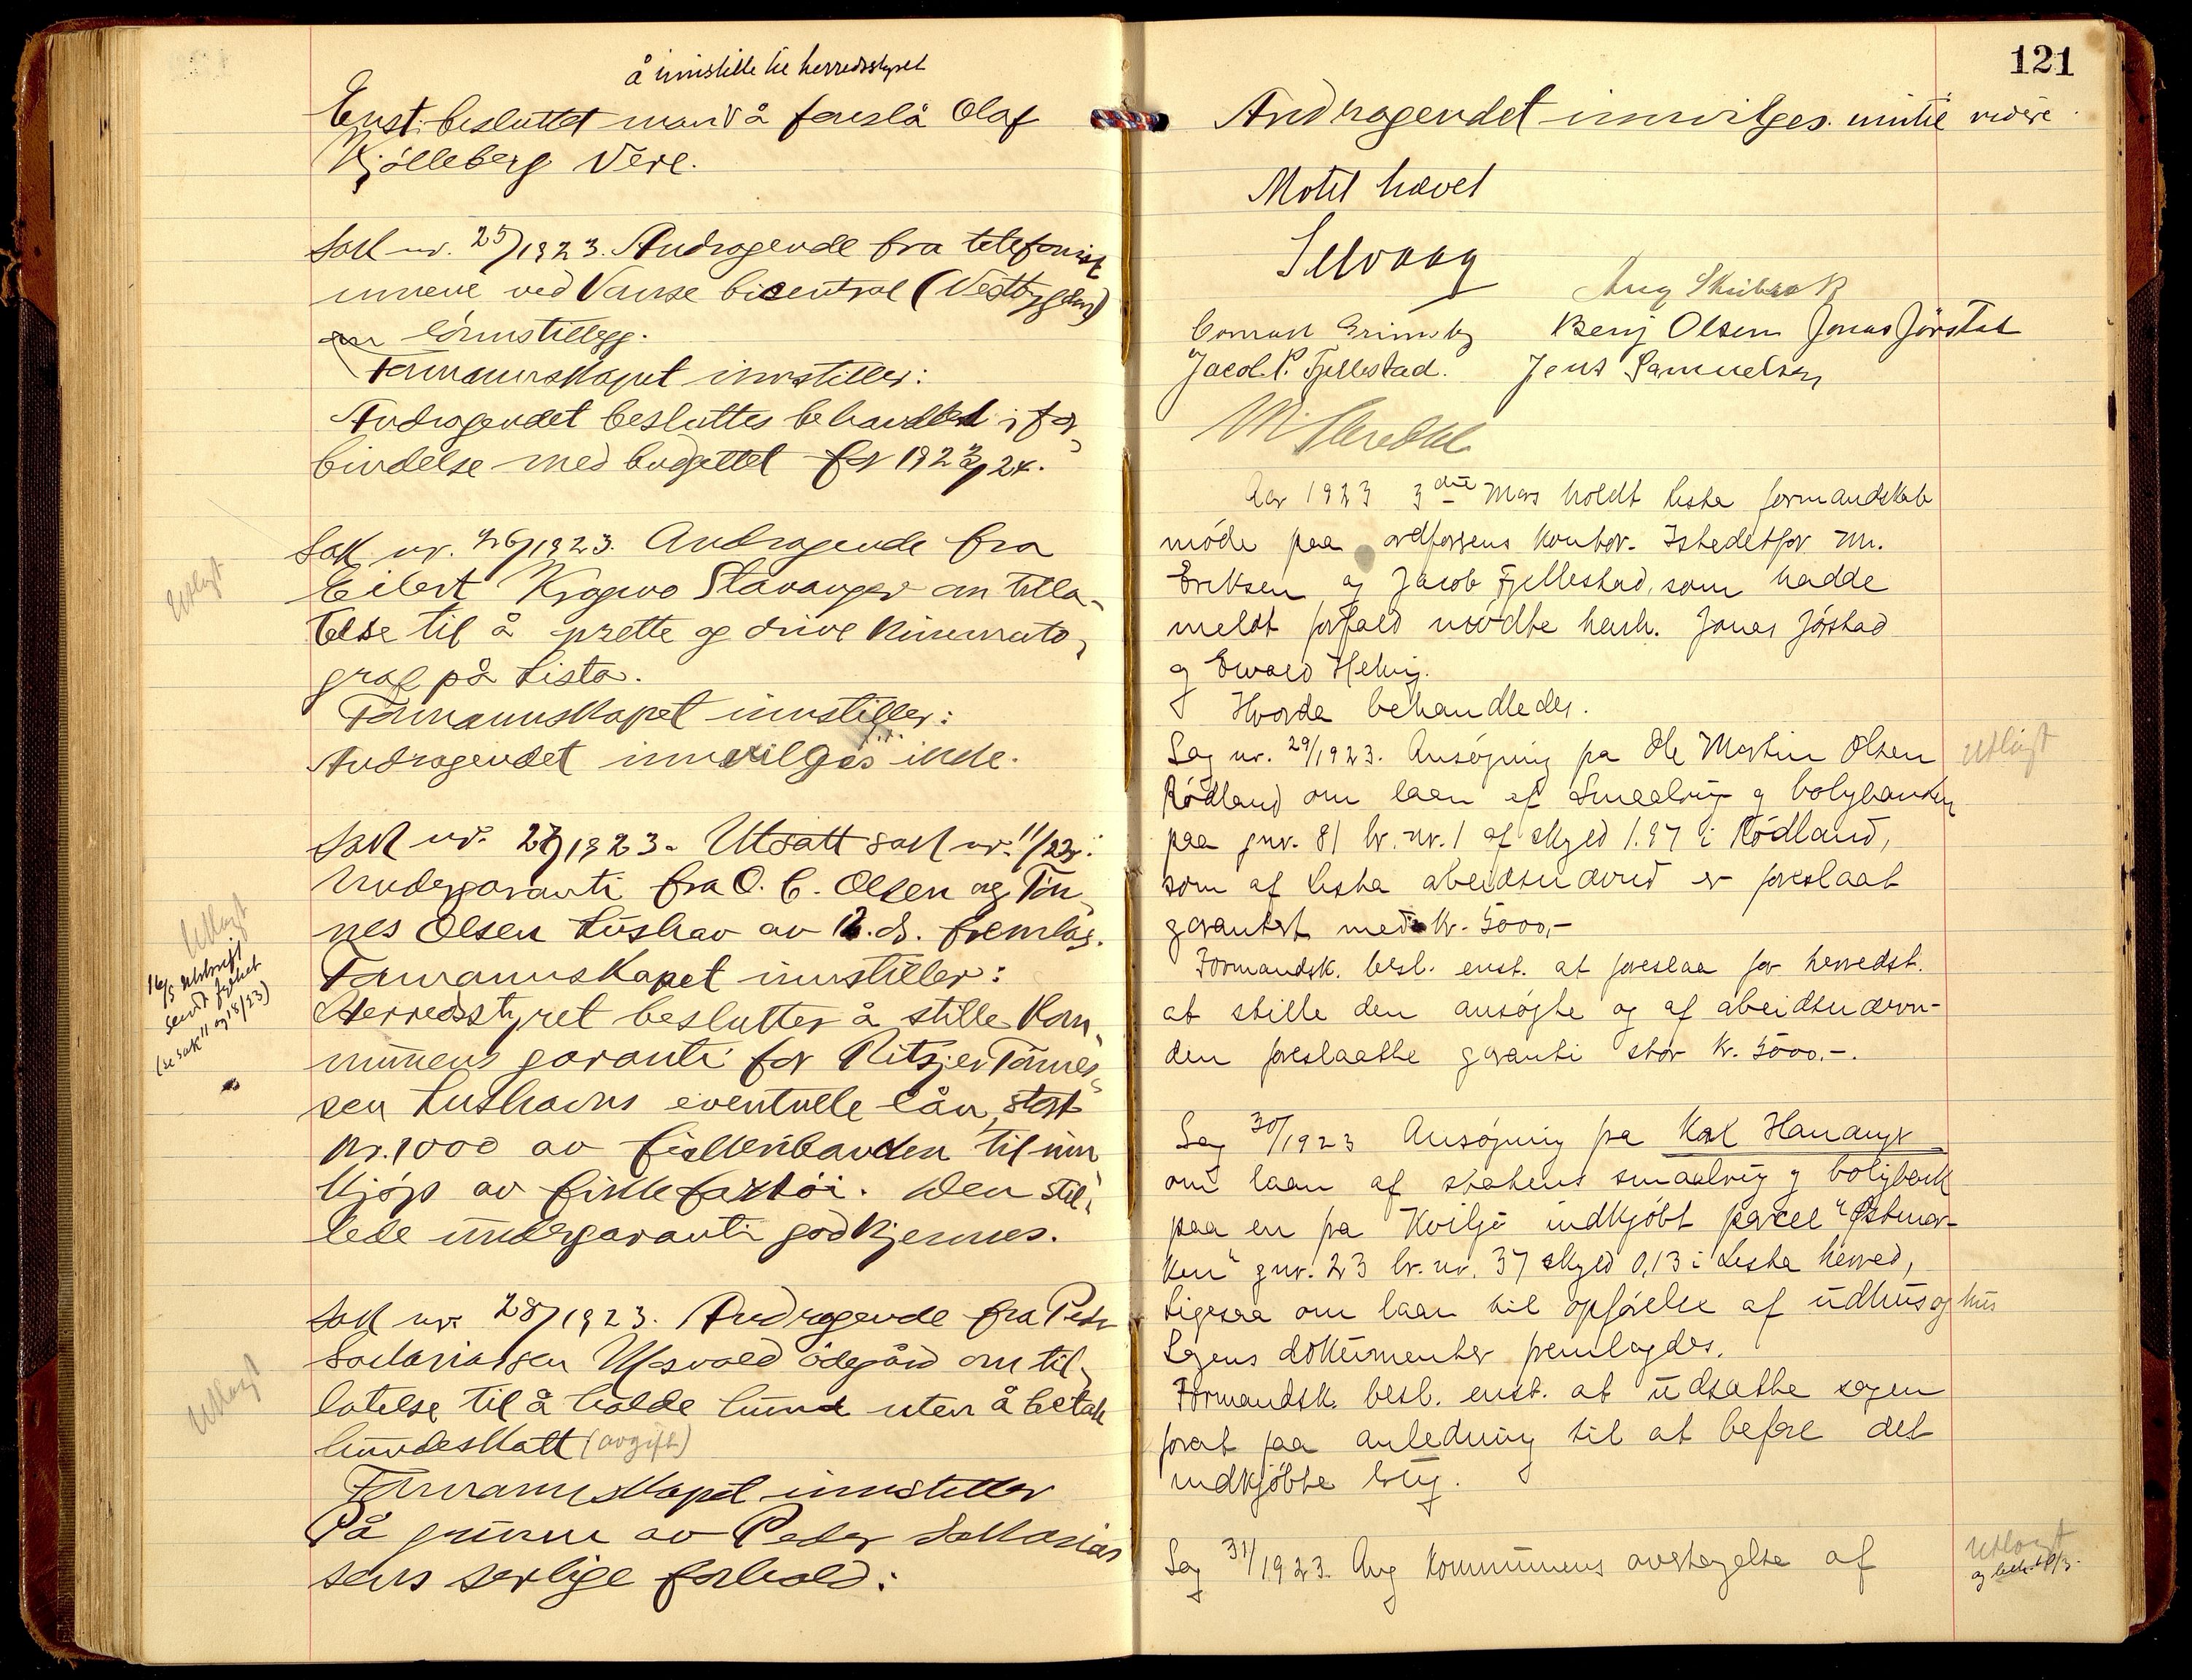 å innstille til herredsstyret
Enst. besluttet man å foreslå Olaf
Kjølleberg Vere.
Sak nr. 25/1923. Andragende fra telefonist
innene ved Vanse bicentral (Vestbygden)
om lønnstillegg.
Formannskapet innstiller:
Andragendet besluttes behandlet i for
bindelse med budgettet for 1923/24.
Utlagt
Sak nr. 26/1923. Andragende fra
Eilert Kragwo Stavanger om tilla-
telse til å oprette og drive kinemato-
graf på Lista.
Formannskapet innstiller:
Andragendet innvilges ikke.
Sak nr. 27/1923. Utsatt sak nr. 11/23:
Undergaranti fra O. C. Olsen og Tøn-
nes Olsen Lushavn av 12. ds. fremlag.
Utlagt
16/5 utskrift
sendt fylket
(se sak 11 og 18/23)
Formannskapet innstiller:
Herredsstyret beslutter å stille kom-
munens garanti for Ritsjer Tønnes-
sen Lushavns eventuelle lån, stort
kr. 1000 av fiskeribanken til inn
kjøp av fiskefartøi. Den stil-
lede undergaranti godkjennes.
Sak nr. 28/1923. Andragende fra Peder
Sakariassen Mosvold ødegård om til-
latelse til å holde hund uten å betale
hundeskatt (avgift)
Utlagt
Formannskapet innstiller
På grunn av Peder Sakarias
sens serlige forhold:
121
Andragendet innvilges. inntil videre.
Møtet hævet
Selvaag
Aug Skeibrok
Conrad Grimsby Benj Olsen Jonas Jørstad
Jacob P. Fjellestad. Jens Samuelsen
Aar 1923 3die Mars holdt Lista formandskab
møde paa ordførerens kontor. Istedetfor M.
Eriksen og Jacob Fjellestad, som hadde
meldt forfald mødte henh. Jonas Jøstad
og Ewald Helvig.
Hvorda behandledes.
Sag nr. 29/1923. Ansøgning fra Ole Martin Olsen
Utlagt
Rødland om laan af Smaabrug og boligbanken
paa gnr. 81 br. nr. 1 af skyld 1.97 i Rødland,
som af Lista abeidsnævnd er foreslaat
garantert med kr. 5000,-
Formandsk. besl. enst. at foreslaa for herredst.
at stille den ansøgte og af abeidsnævn-
den foreslaatte garanti stor kr. 5000.-.
Sag 30/1923 Ansøgning fra Karl Hananger
om laan af statens smaabrug og boligbank
paa en fra Kviljo indkjøbt parcel "Østmar-
ken" gnr. 23 br. nr. 37 skyld 0,13 i Lista herred,
ligesaa om laan til opførelse af udhus og hus
Sagens dokumenter fremlagdes.
Formandsk. besl. enst. at udsætte sagen
forat faa anledning til at befare det
indkjøbte brug.
Sag 31/1923. Ang kommunens overtagelse af
Utlagt